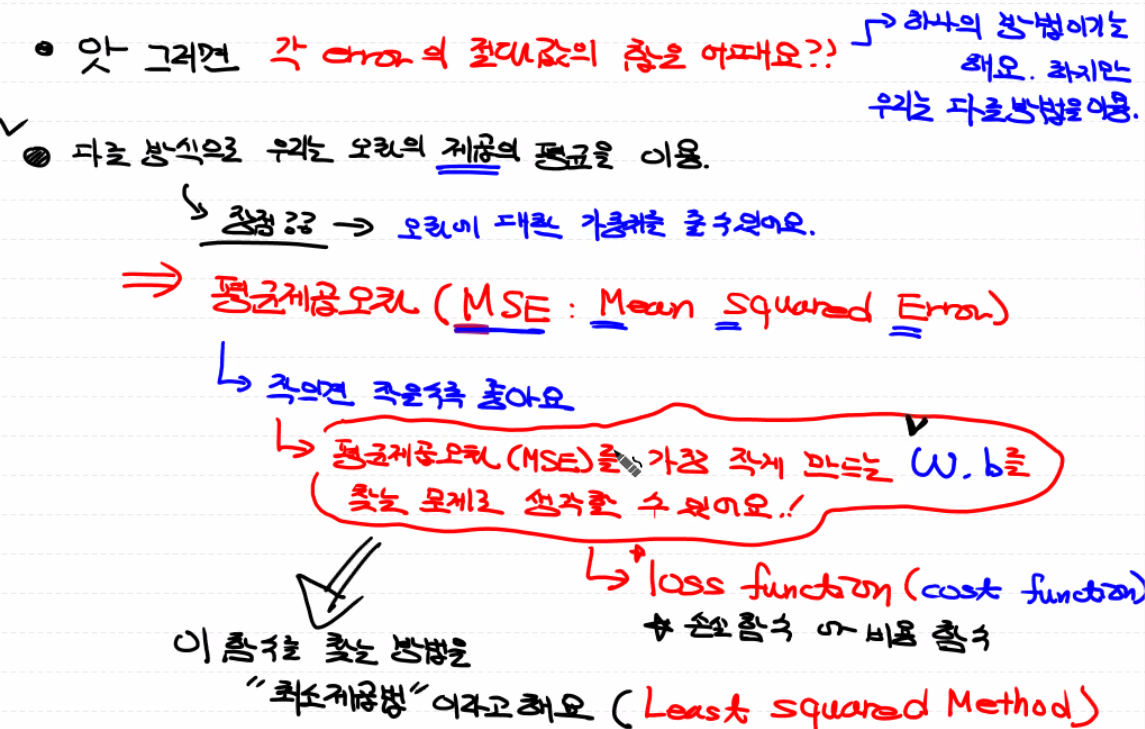 앗 그러면 각 error의 절대값의 합은 어때요??
하나의 방법이기는
해요. 하지만
우리는 다른 방법을 이용.
다른 방식으로 우리는 오차의 제곱의 평균을 이용.
장점 → 오차에 대한 가중치를 줄 수 있어요.
⇒ 평균제곱오차 (MSE : Mean Squared Error)
작으면 작을수록 좋아요
평균제곱오차(MSE)를 가장 작게 만드는 W, b를
찾는 문제로 생각할 수 있어요!
loss function (cost function)
* 손실함수 or 비용 함수
이 함수를 찾는 방법을
"최소제곱법"이라고 해요 (Least squared Method)